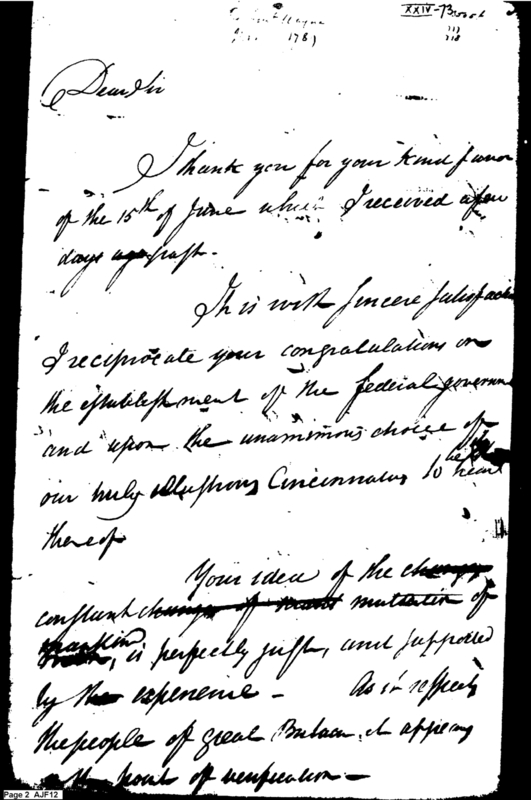 Wayne
1789
XXIV-Brook
Dear Sir
I thank you for your kind favor
of the 15th of June which I received a few
days ago past.
It is with sincere satisfaction
I reciprocate your congratulations on
the establishment of the federal governm
and upon the unanimous choice of
our truly illustrious Cincinnatus to
thereof
Your idea of the change
constant change of mutation of
mankind, is perfectly just, and supported
by the experience — As it respects
the people of great Britain, it appears
the point of verification —
Page 2 AJF12